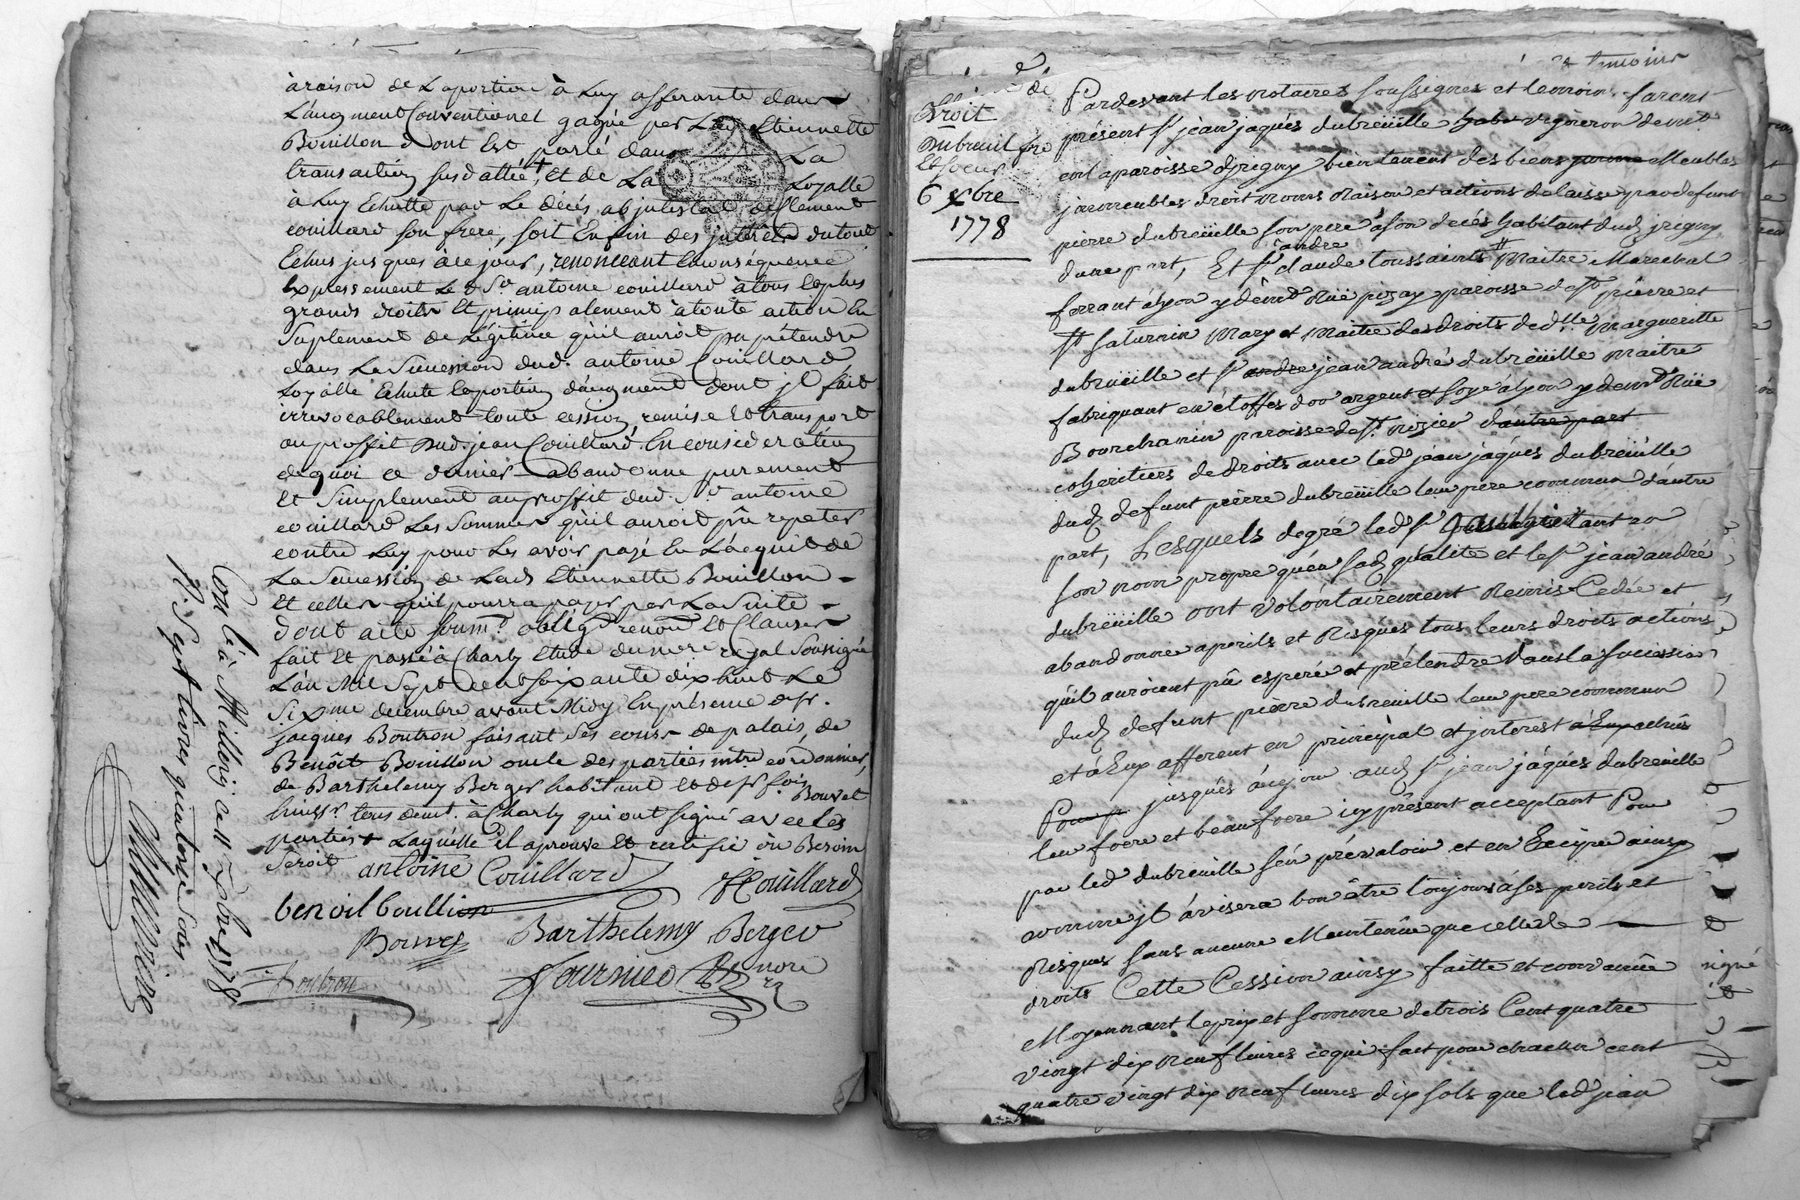 à raison de La portion à Luy afferante dans
L'augment Conventionel gagné par Lad. Etiennette
Bouillon dont Est parlé dans La
transaction susdattée, et de La Loyalle
à Luy Echutte par Le decés ab intestat de Clement
couillard son frere, soit Enfin des interets du tout
Echus jusques à ce jour, renonceant Enconséquence
Expressement Le d. Sr. antoine couillard à tous les plus
grands droits Et principalement à toute action En
Suplement de Légitime qu'il auroit pu prétendre
dans La Succession dud. antoine Couillard
Loyalle Echute & portion d'augment dont jl fait
irrevocablement toute cession, remise Et transport
au proffit dud. jean Couillard En consideration
de quoi ce dernier abandonne purement
Et Simplement au proffit dud. Sr. antoine
couillard Les Sommes qu'il auroit pû repeter
contre Luy pour Les avoir payé En L'acquit de
La Succession de Lad. Etiennette Bouillon
Et celles qu'il pourra payer par La Suite
Dont acte soum. oblig. renon. Et Clauses
fait Et passé à Charly Etude du nore. royal Soussigné
L'an Mil Sept Cent soixante dix huit Le
Sixme decembre avant Midy En présence de Sr.
jacques Boutron faisant Ses cours de palais, de
Benoit Bouillon oncle des parties mtre cordonnier,
de Barthelemy Berger habitant et de Sr fois Bouvet
huissr. tous demt. à Charly qui ont signé avec Les
parties + Laquelle il aprouve Et ratifie où Besoin
Seroit
antoine Couillard
JCouillard
benoit boullion
Bouvet
Barthelemy Berger
Boutron
Fournier nore rx
Con lé à Millery ce 11 Xbre 1778
R. Sept livres quatorze sols
Droit
Dubreuil fre
Et soeur
6 xbre
1778
Pardevant les notaires soussignés et temoins furent
présent sr jean jaques dubreüille vigneron demt.
en la paroisse d'jrigny bientenent des biens Meubles
jmmeubles droit noms Raison et actions delaissé par defunt
pierre dubreüille son pere à son decés habitant dud. jrigny
d'une part, Et sr claude andre toussaint Maitre Marechal
ferrant à lyon y demt Rüe pizay paroisse de st pierre et
st Saturnin Mary et Maitre des droits de dlle. Margueritte
dubreüille et sr andre jean andré dubreüille Maitre
fabriquant en étoffes d'or argent et soye à lyon y demt Rüe
Bourchanin paroisse de st. nizier d'autre part
coheritiers de droits avec led. jean jáques dubreüille
dud. defunt pierre dubreüille leur pere commun d'autre
part, Lesquels de gré led. sr toussaint tant en
son nom propre qu'en sad. qualité et le sr jean andré
dubreüille ont volontairement Remis Cedée et
abandonne a perils et Risques tous leurs droits actions
qu'il auroient pû esperé et prétendre dans la succession
dud. defunt pierre dubreuille leur pere commun
et à Eux afferent en principal et jnterest à Eux echus
Pour jusqués à ce jour aud. sr jean jáqués dubreüille
leu frere et beau frere icy présent acceptant Pour
par led. dubreüille s'en prévaloir et en Ecéyre ainsy
comme jl àvisera bon être toujours à ses perils et
Risques sans aucune Maintenüe que celle de
droits Cette Cession ainsy faitte et convenüe
Moyennant le prix et somme de trois Cent quatre
vingt dix neuf livres ce qui fait pour chacun cent
quatre vingt dix neuf livres dix sols que led. jean